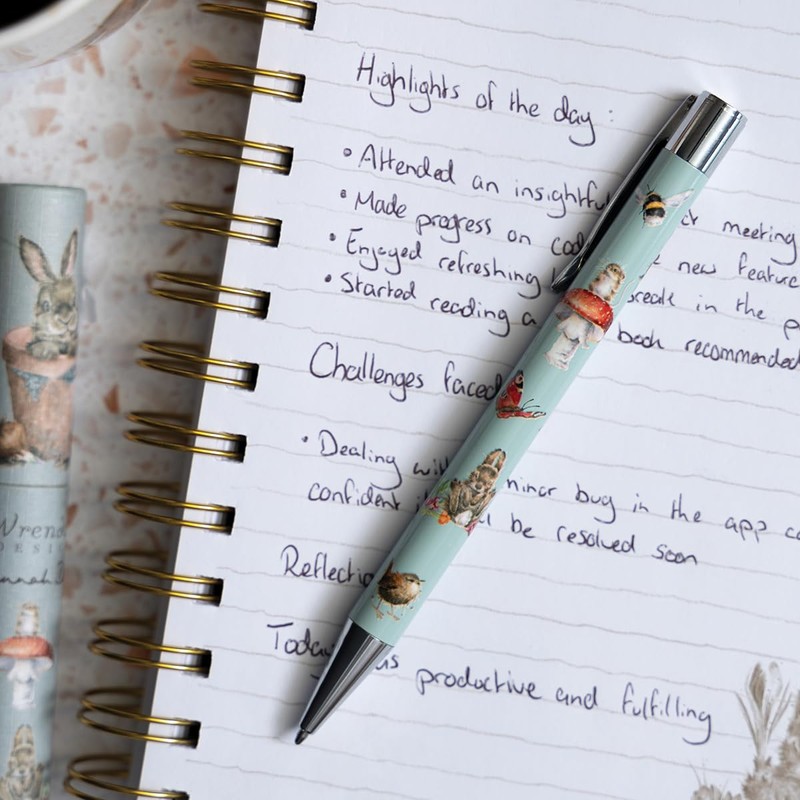 Highlights of the day :
• Attended an insightful meeting
• Made progress on new feature
• Enjoyed refreshing break in the
• Started reading a book recommended
Challenges faced
• Dealing with minor bug in the app
confident be resolved soon
Today productive and fulfilling
Wren
DESI